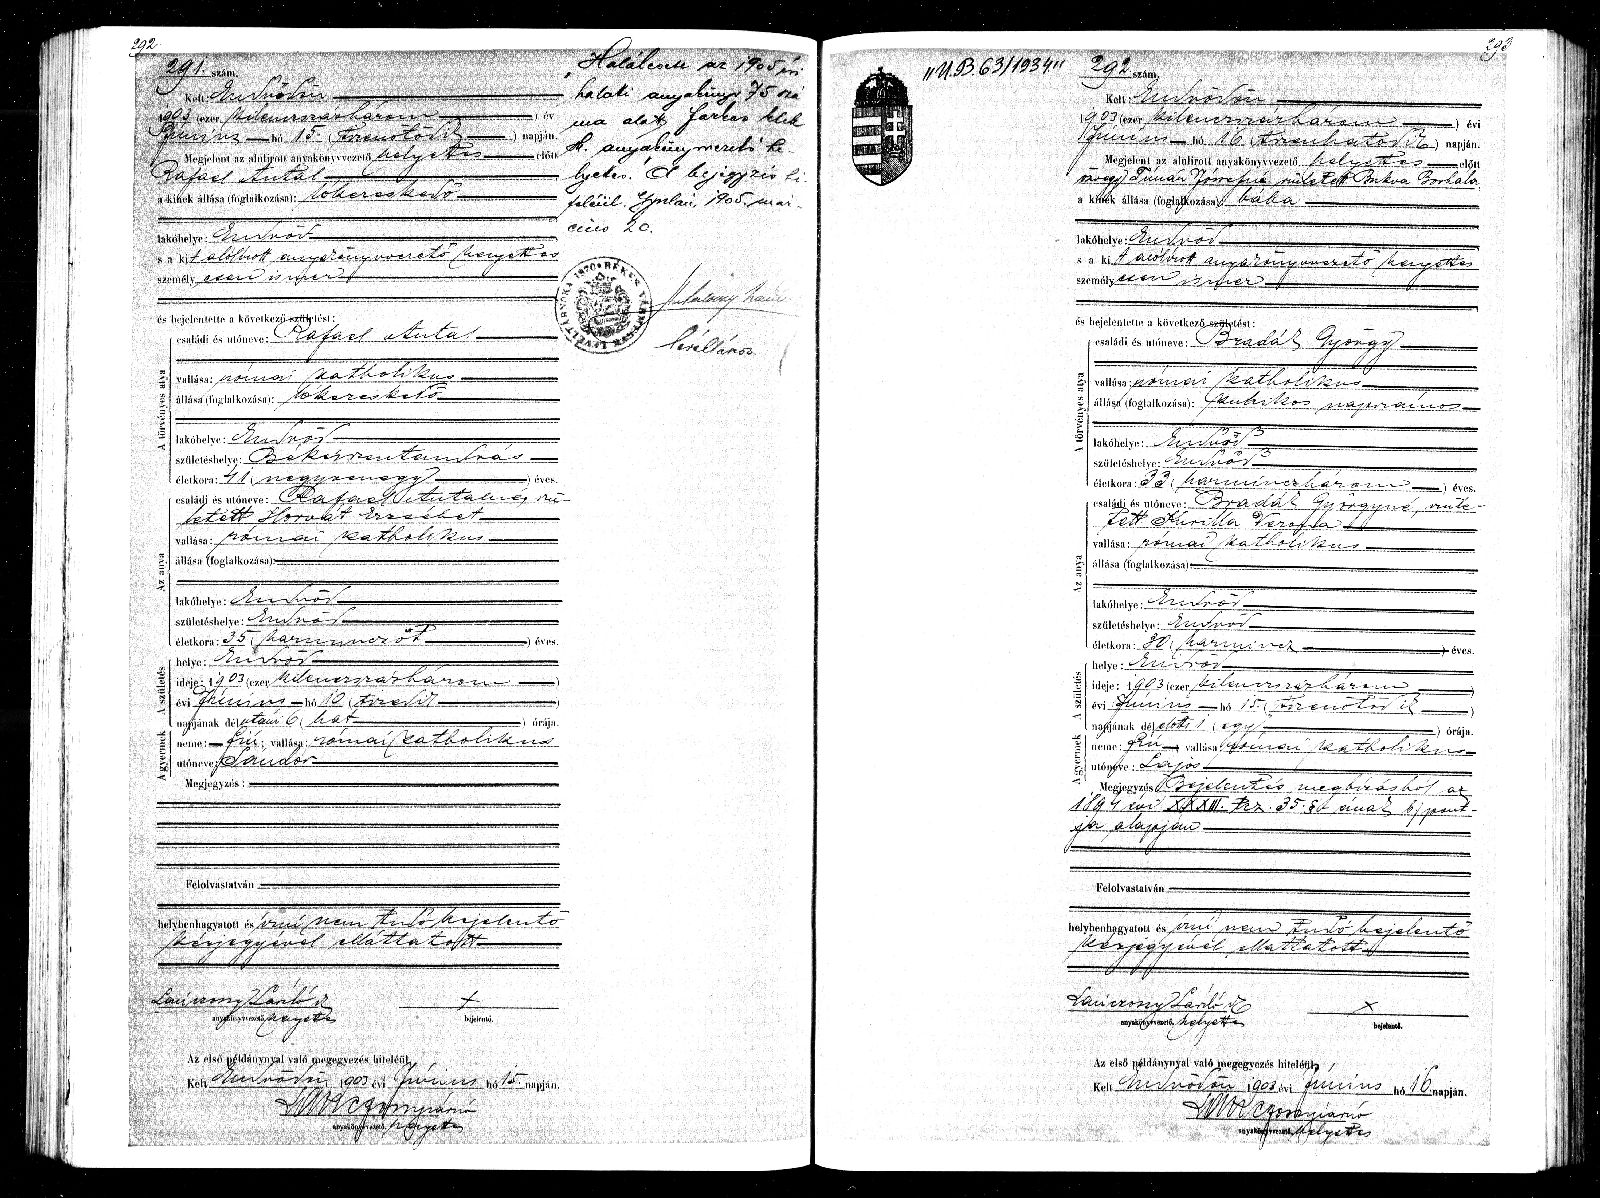 292
291. szám.
Kelt: Endrődön
1903 (ezer kilenczszázhárom) év
Június hó 15. (tizenötödik) napján.
Megjelent az alulirott anyakönyvvezető helyettes előtt
Rafael Antal
a kinek állása (foglalkozása): lókereskedő
lakóhelye: Endrőd
s a kit alólirott anyakönyvvezető helyettes
személyesen ismer
és bejelentette a következő születést:
A törvényes atya
családi és utóneve: Rafael Antal
vallása: római katholikus
állása (foglalkozása): lókereskedő
lakóhelye: Endrőd
születéshelye: Békésszentandrás
életkora: 41 (negyvenegy) éves.
Az anya
családi és utóneve: Rafael Antalné, szü-
letett Horvát Erzsébet
vallása: római katholikus
állása (foglalkozása):
lakóhelye: Endrőd
születéshelye: Endrőd
életkora: 35 (harminczöt) éves.
A születés
helye: Endrőd
ideje: 1903 (ezer kilenczszázhárom)
évi Június hó 10 (tizedik)
napjának délutáni 6 (hat) órája.
A gyermek
neme: fiú; vallása: római katholikus
utóneve: Sándor
Megjegyzés:
Felolvastatván
helybenhagyatott és írni nem tudó bejelentő
kézjegyével elláttatott
+
anyakönyvvezető, helyettes
bejelentő.
Az első példánynyal való megegyezés hiteléül
Kelt Endrődön 1903 évi Június hó 15. napján.
anyakönyvvezető, helyettes
Halálesete az 1905 évi
halotti anyakönyv 75 szá
ma alatt. Farkas
h. anyakönyvvezető he-
lyettes. A bejegyzés hi-
teléül. Gyulai, 1905. már-
cius 20.
levéltáros
"U.B. 63/1934"
293
292 szám.
Kelt: Endrődön
1903 (ezer kilenczszázhárom) évi
Június hó 16 (tizenhatodik) napján.
Megjelent az alulirott anyakönyvvezető helyettes előtt
özvegy Tímár Józsefné született Bukva Borbála
a kinek állása (foglalkozása): bába
lakóhelye: Endrőd
s a kit alólirott anyakönyvvezető helyettes
személyesen ismer
és bejelentette a következő születést:
A törvényes atya
családi és utóneve: Bradák György
vallása: római katholikus
állása (foglalkozása): kubikos napszámos
lakóhelye: Endrőd
születéshelye: Endrőd
életkora: 33 (harminczhárom) éves.
Az anya
családi és utóneve: Bradák Györgyné, szüle-
tett Kurilla Verona
vallása: római katholikus
állása (foglalkozása):
lakóhelye: Endrőd
születéshelye: Endrőd
életkora: 30 (harmincz) éves.
A születés
helye: Endrőd
ideje: 1903 (ezer kilenczszázhárom)
évi Június hó 15 (tizenötödik)
napjának délelőtti 1 (egy) órája.
A gyermek
neme: fiú vallása: római katholikus
utóneve: Lajos
Megjegyzés: Bejelentés megbízásból az
1894 évi XXXIII. tcz. 35. §-ának b) pont-
ja alapján
Felolvastatván
helybenhagyatott és írni nem tudó bejelentő
kézjegyével elláttatott
x
anyakönyvvezető, helyettes
bejelentő.
Az első példánynyal való megegyezés hiteléül
Kelt Endrődön 1903 évi Június hó 16 napján.
anyakönyvvezető, helyettes